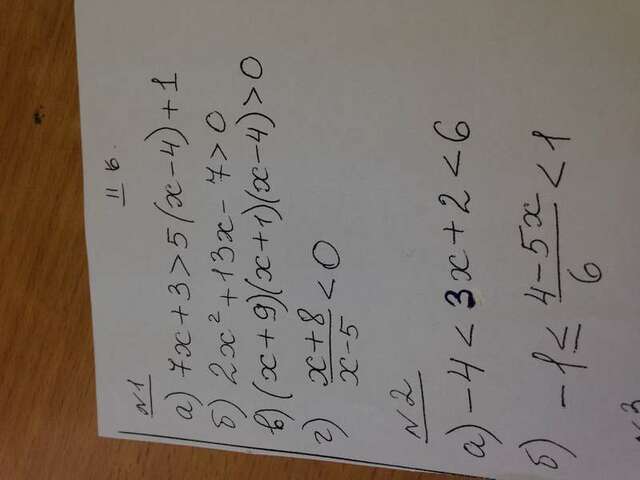 II в.
№1
а) 7x+3>5(x-4)+1
б) 2x²+13x-7>0
в) (x+9)(x+1)(x-4)>0
г) (x+8)/(x-5)<0
№2
а) -4<3x+2<6
б) -1≤(4-5x)/6<1
№3